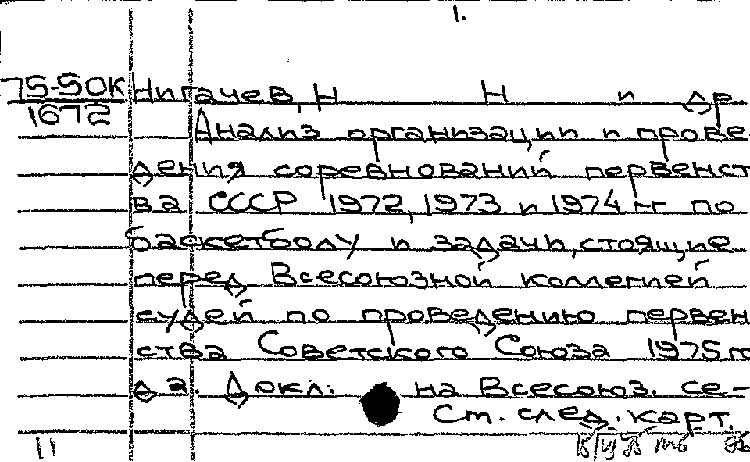 1.
75-50к Нигачев, Н Н и др
1672
Анализ организации и прове-
дения соревнований первенст
ва СССР 1972, 1973 и 1974 гг по
баскетболу и задачи, стоящие
перед Всесоюзной коллегией
судей по проведению первен
ства Советского Союза 1975 го
да. Докл. на Всесоюз. се-
См. след. карт.
11